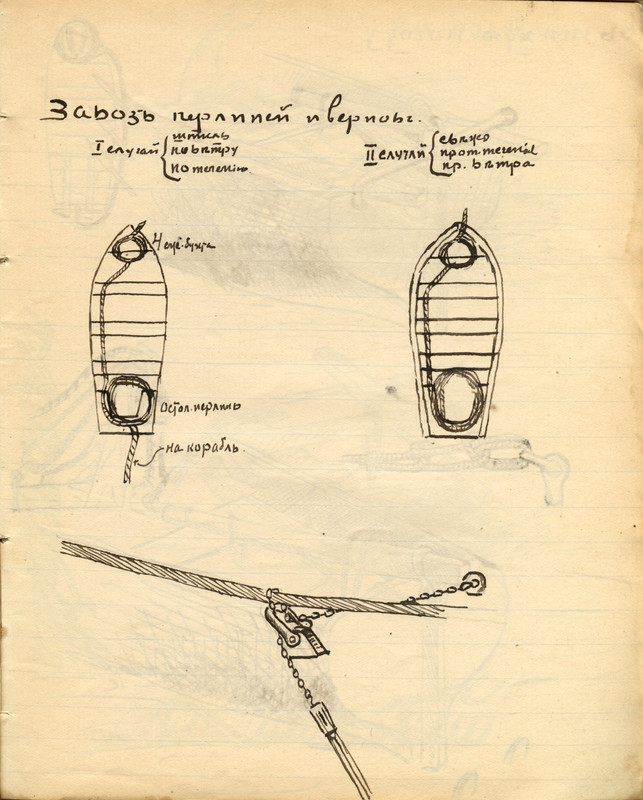 Завозъ перлиней и верповъ.
I случай { штиль
по вѣтру
по теченію
II случай { свѣжо
прот. теченія
пр. вѣтра
бухта
Остал. перлинь
на корабль.